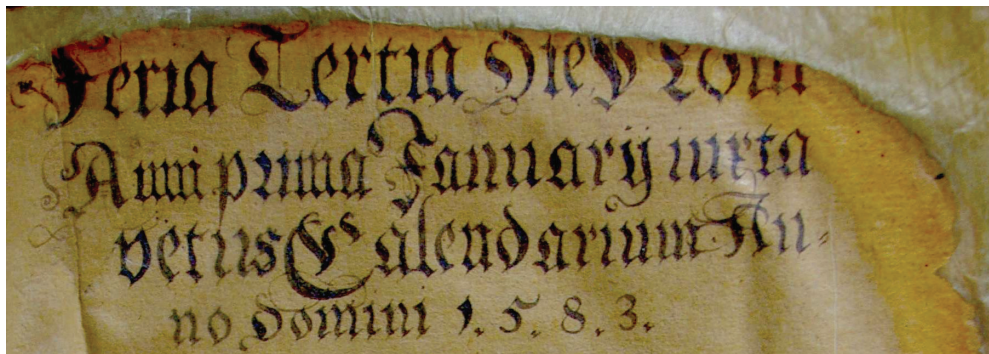 Feria Tertia Dies
Anni prima Januarij iuxta
vetus Calendarium An-
no domini 1. 5. 8. 3.